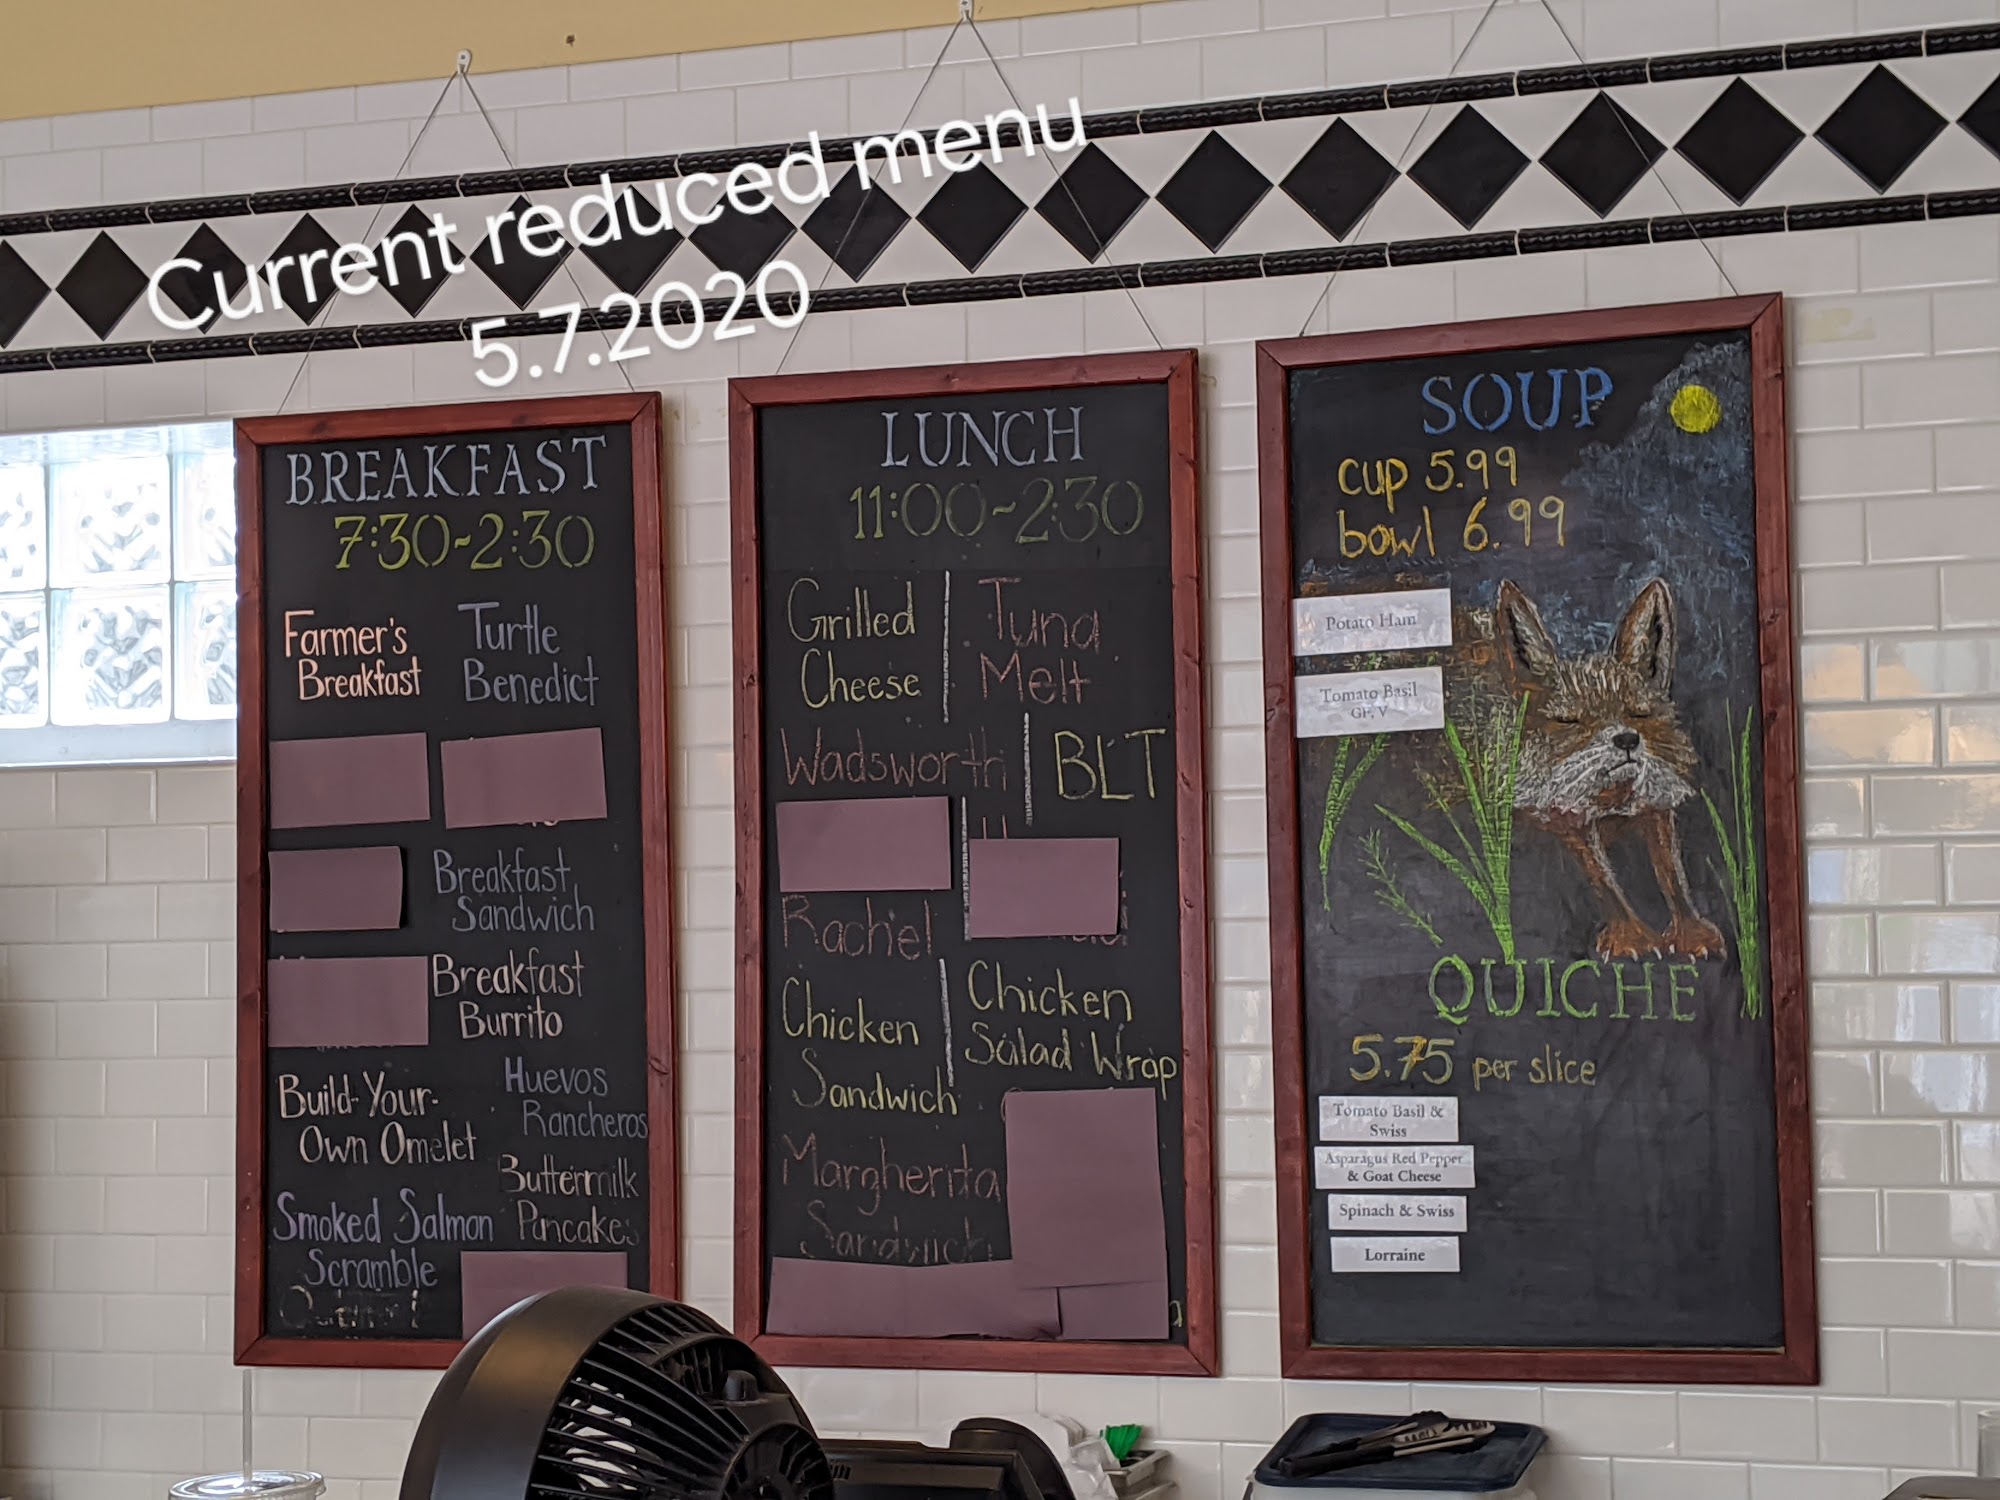 Current reduced menu
5.7.2020
BREAKFAST
7:30-2:30
Farmer's
Breakfast
Turtle
Benedict
Breakfast
Sandwich
Breakfast
Burrito
Build-Your-
Own Omelet
Huevos
Rancheros
Buttermilk
Pancakes
Smoked Salmon
Scramble
LUNCH
11:00-2:30
Grilled
Cheese
Tuna
Melt
Wadsworth
BLT
Rachel
Chicken
Sandwich
Chicken
Salad Wrap
Margherita
Sandwich
SOUP
cup 5.99
bowl 6.99
Potato Ham
Tomato Basil
GF, V
QUICHE
5.75 per slice
Tomato Basil &
Swiss
Asparagus Red Pepper
& Goat Cheese
Spinach & Swiss
Lorraine